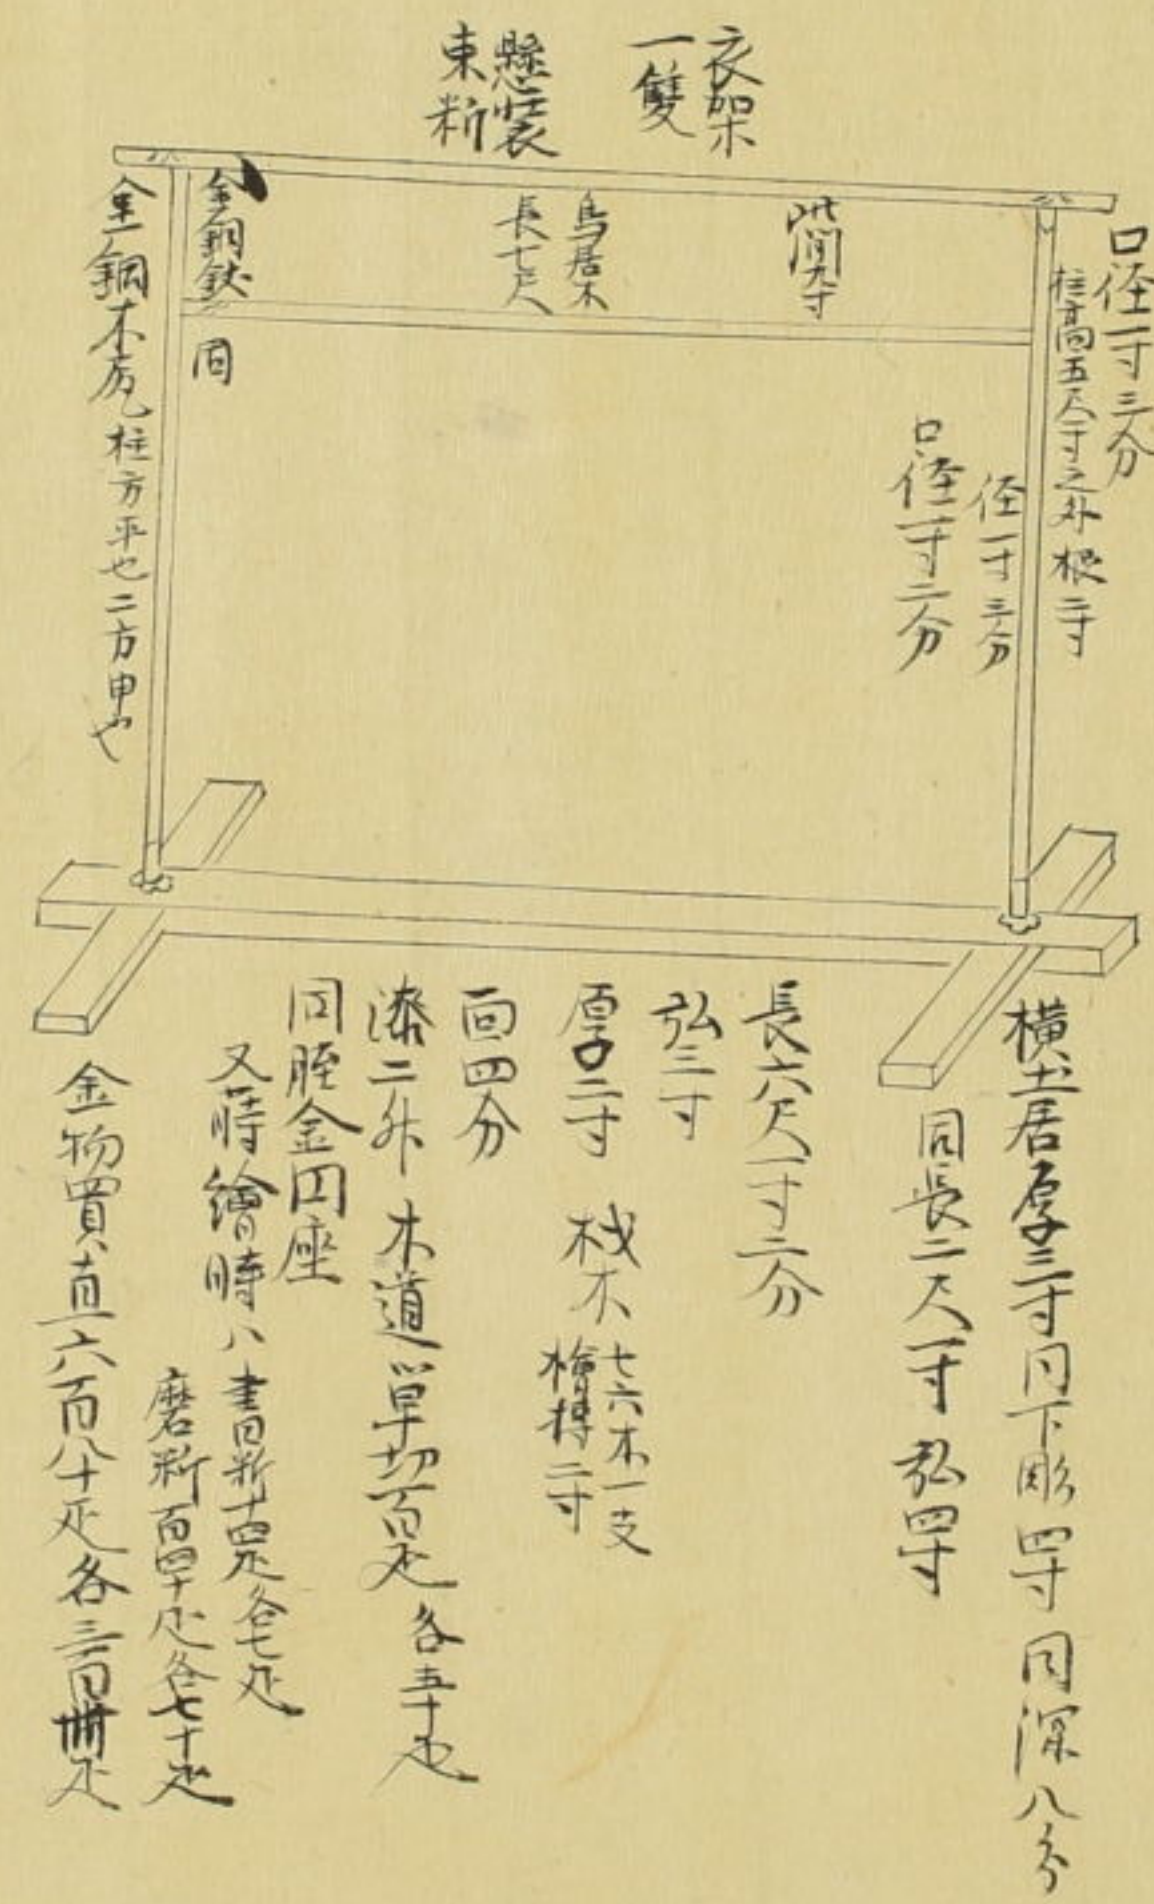 衣架
一雙
懸装
束料
口径一寸三分
柱高五尺一寸之外根二寸
径一寸三分
口径一寸二分
此間九寸
鳥居木
長七尺
金銅鋲
同
金銅木尻
柱方平也二方甲也
横土居厚三寸 同下彫四寸 同深八分
同長二尺一寸 弘四寸
長六尺一寸二分
弘三寸
厚二寸 栈木
七六木一支
檜榑二寸
面四分
漆二升 木道単切百疋 各五十疋
同胵金円座
又蒔繪時ハ書料十四疋各七疋
磨料百四十疋各七十疋
金物買直六百八十疋各三百卌疋